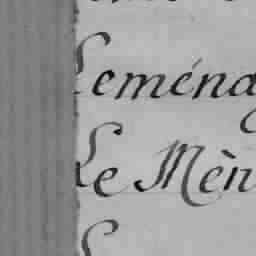 Leména
Le Mèn